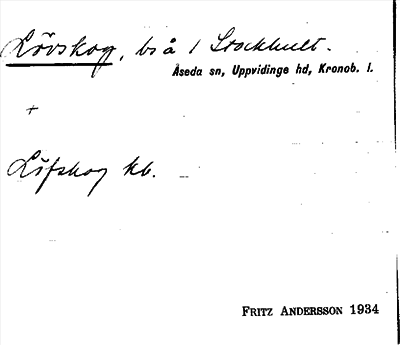 Lövskog, bs å 1 Stockhult.
Åseda sn, Uppvidinge hd, Kronob. l.
+
Löfskog kb.
FRITZ ANDERSSON 1934